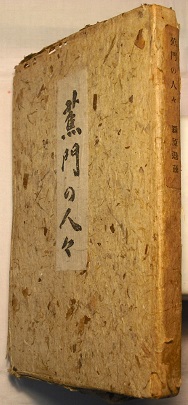 蕉門の人々
蕉門の人々